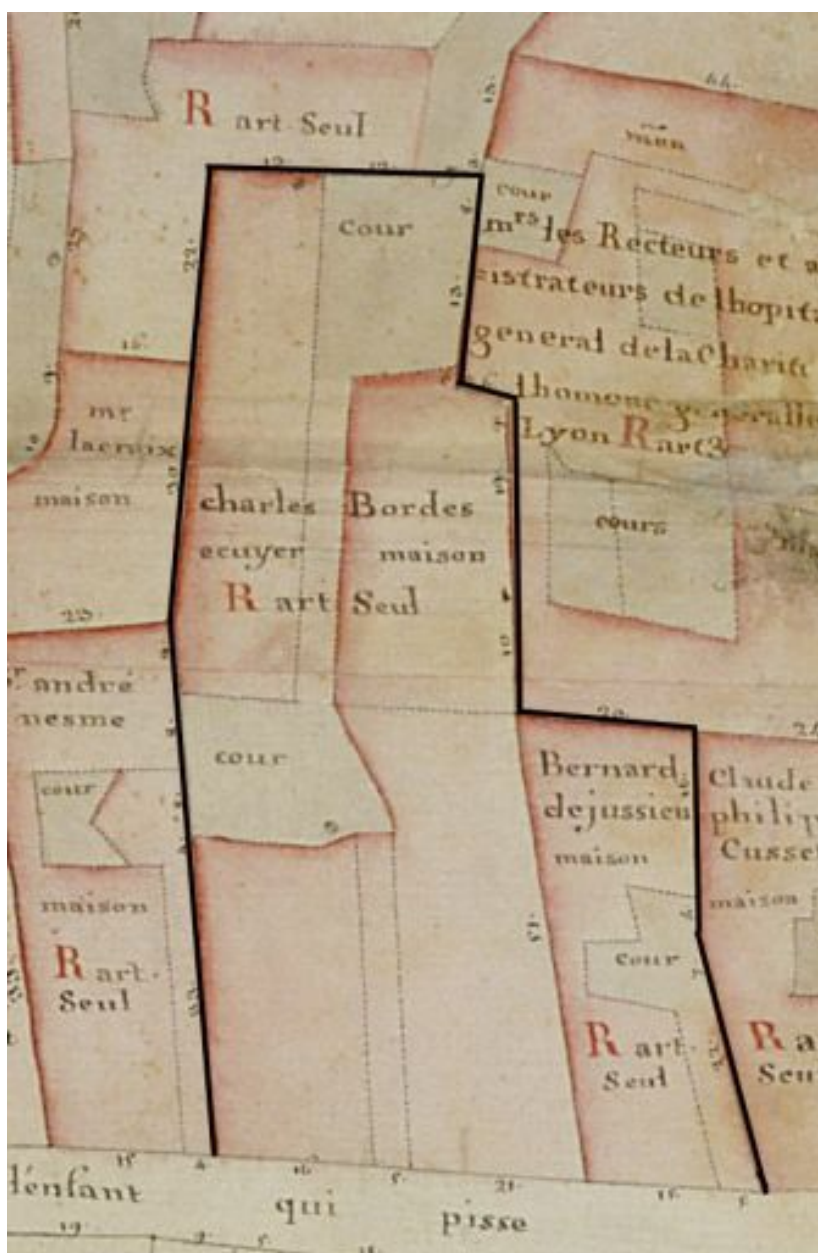 R art Seul
män
cour
cour
mrs les Recteurs et a
=istrateurs de lhopita
general dela Charité
& lhomone generalle
Lyon R art 3
44.
22
15.
mr
lacroix
maison
charles Bordes
ecuyer maison
R art Seul
cours
23.
sr andré
nesme
cour
cour
maison
R art.
Seul
20.
Bernard
dejussieu
maison
cour
R art.
Seul
Claude
philip
Cusset
maison
R a
Seu
15
4.
16
5.
21.
15.
5.
l'enfant qui pisse
19.
9.
5.